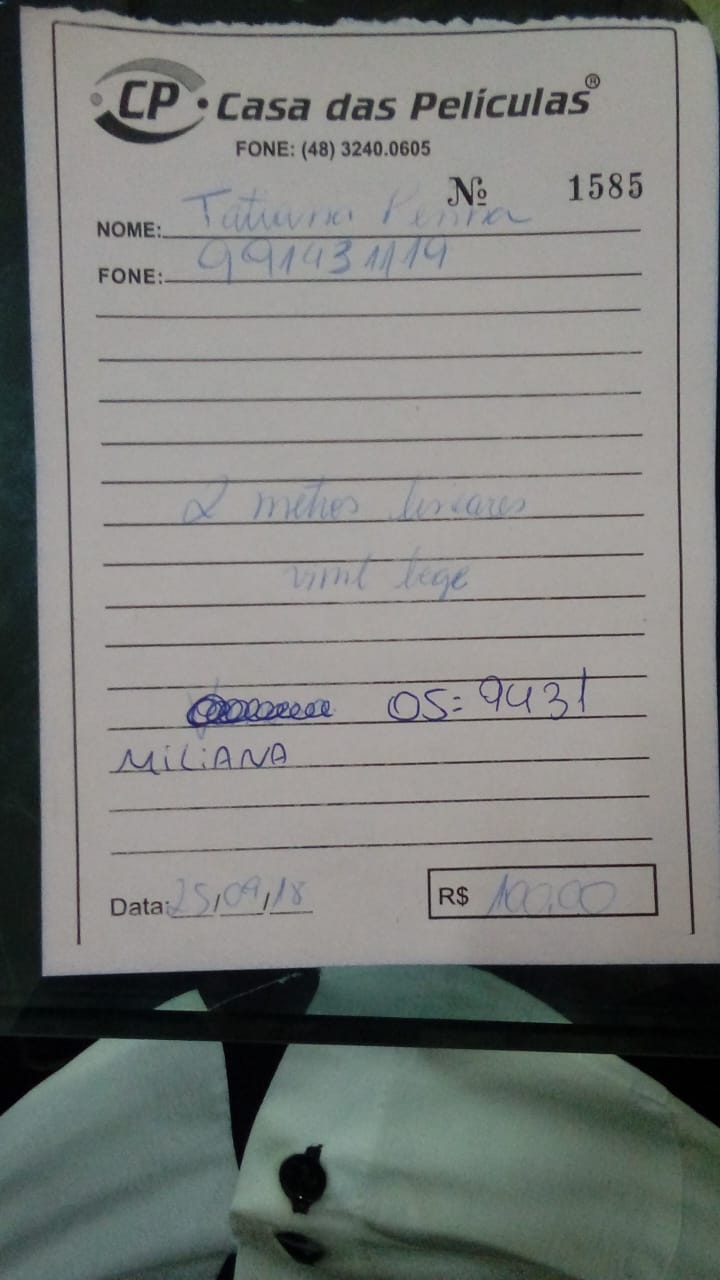 CP • Casa das Películas®
FONE: (48) 3240.0605
Nº 1585
NOME: Tatiana Penna
FONE: 991431119
2 metros lineares
vinil bege
OS: 9431
MiLiANA
Data: 25/09/18
R$ 100,00